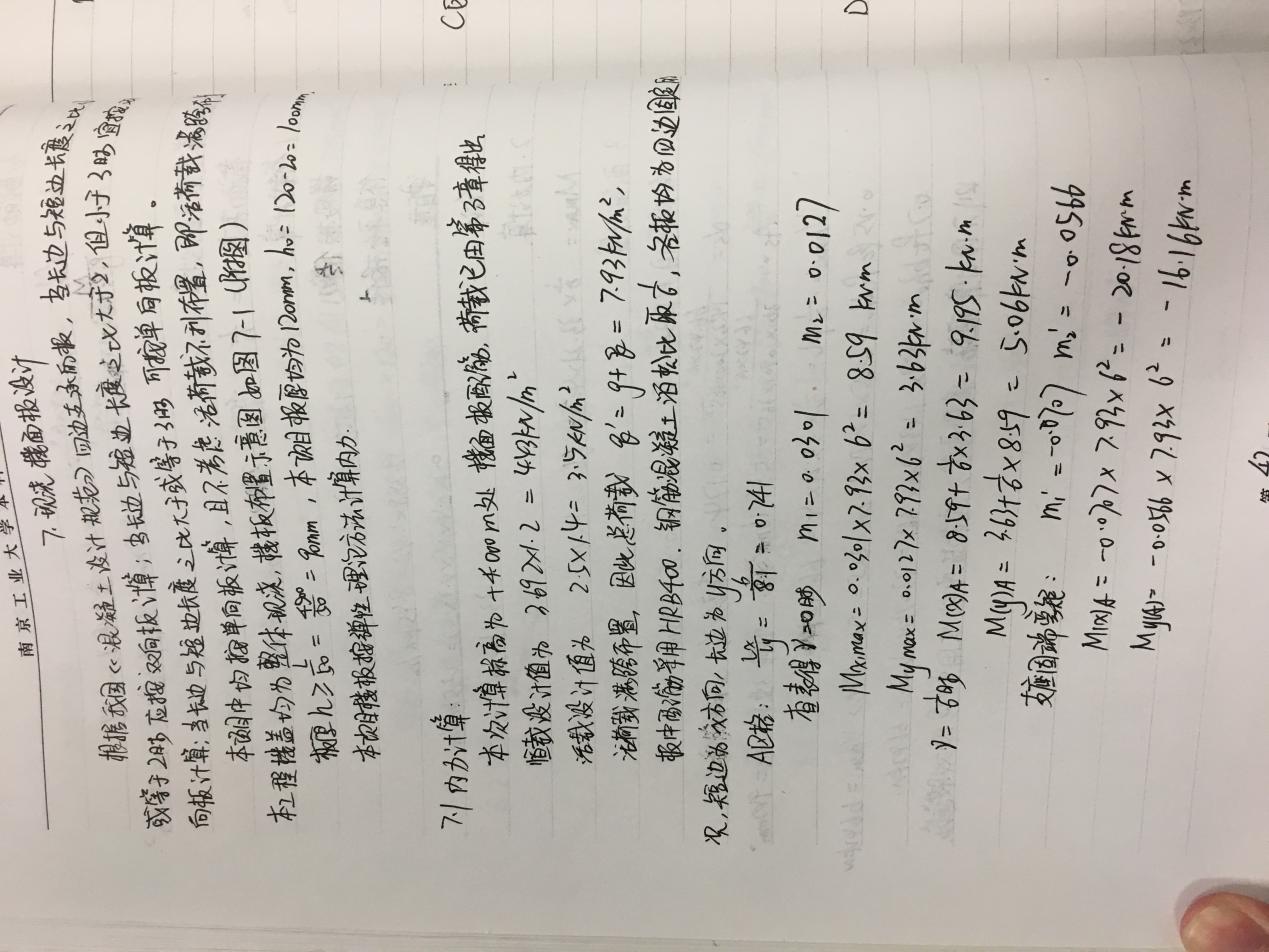 南京工业大学本科
7. 现浇楼面板设计
根据我国《混凝土设计规范》四边支承的板，当长边与短边长度之比
或等于2时应按双向板计算；当长边与短边长度之比大于2，但小于3时宜按
向板计算；当长边与短边长度之比大于或等于3时 可按单向板计算。
本项目中均按单向板计算，且不考虑活荷载不利布置，即活荷载满跨布
本工程楼盖均为整体现浇，楼板布置示意图如图7-1（附图）
板厚 h≥ L/50 = /50 = 90mm，本项目板厚均为120mm，h₀=120-20=100mm
本项目楼板按弹性理论方法计算内力.
7.1 内力计算：
本次计算标高为+4.000m处 楼面板配筋，荷载已由第3章得出
恒载设计值为 3.69×1.2 = 4.43kN/m²
活载设计值为 2.5×1.4 = 3.5kN/m²
活荷载满跨布置，因此总荷载 q' = g+q = 7.93kN/m²，
板中配筋采用HRB400. 钢筋混凝土泊松比取1/6，各板均为四边固定
况，短边为x方向，长边为y方向.
A区格： lx/ly = 6/8.1 = 0.741
查表得γ=0时 m1=0.0301 m2=0.0127
Mxmax=0.0301×7.93×6²= 8.59 kN·m
Mymax=0.0127×7.93×6²= 3.63kN·m
γ=1/6时 M(x)A=8.59+1/6×3.63= 9.195.kN·m
M(y)A= 3.63+1/6×8.59 = 5.06kN·m
支座固端弯矩: m1'=-0.0707 m2'= -0.0566
M(x)A=-0.0707×7.93×6²= -20.18kN·m
My(A)= -0.0566×7.93×6²= -16.16kN·m
第 42
CE
D